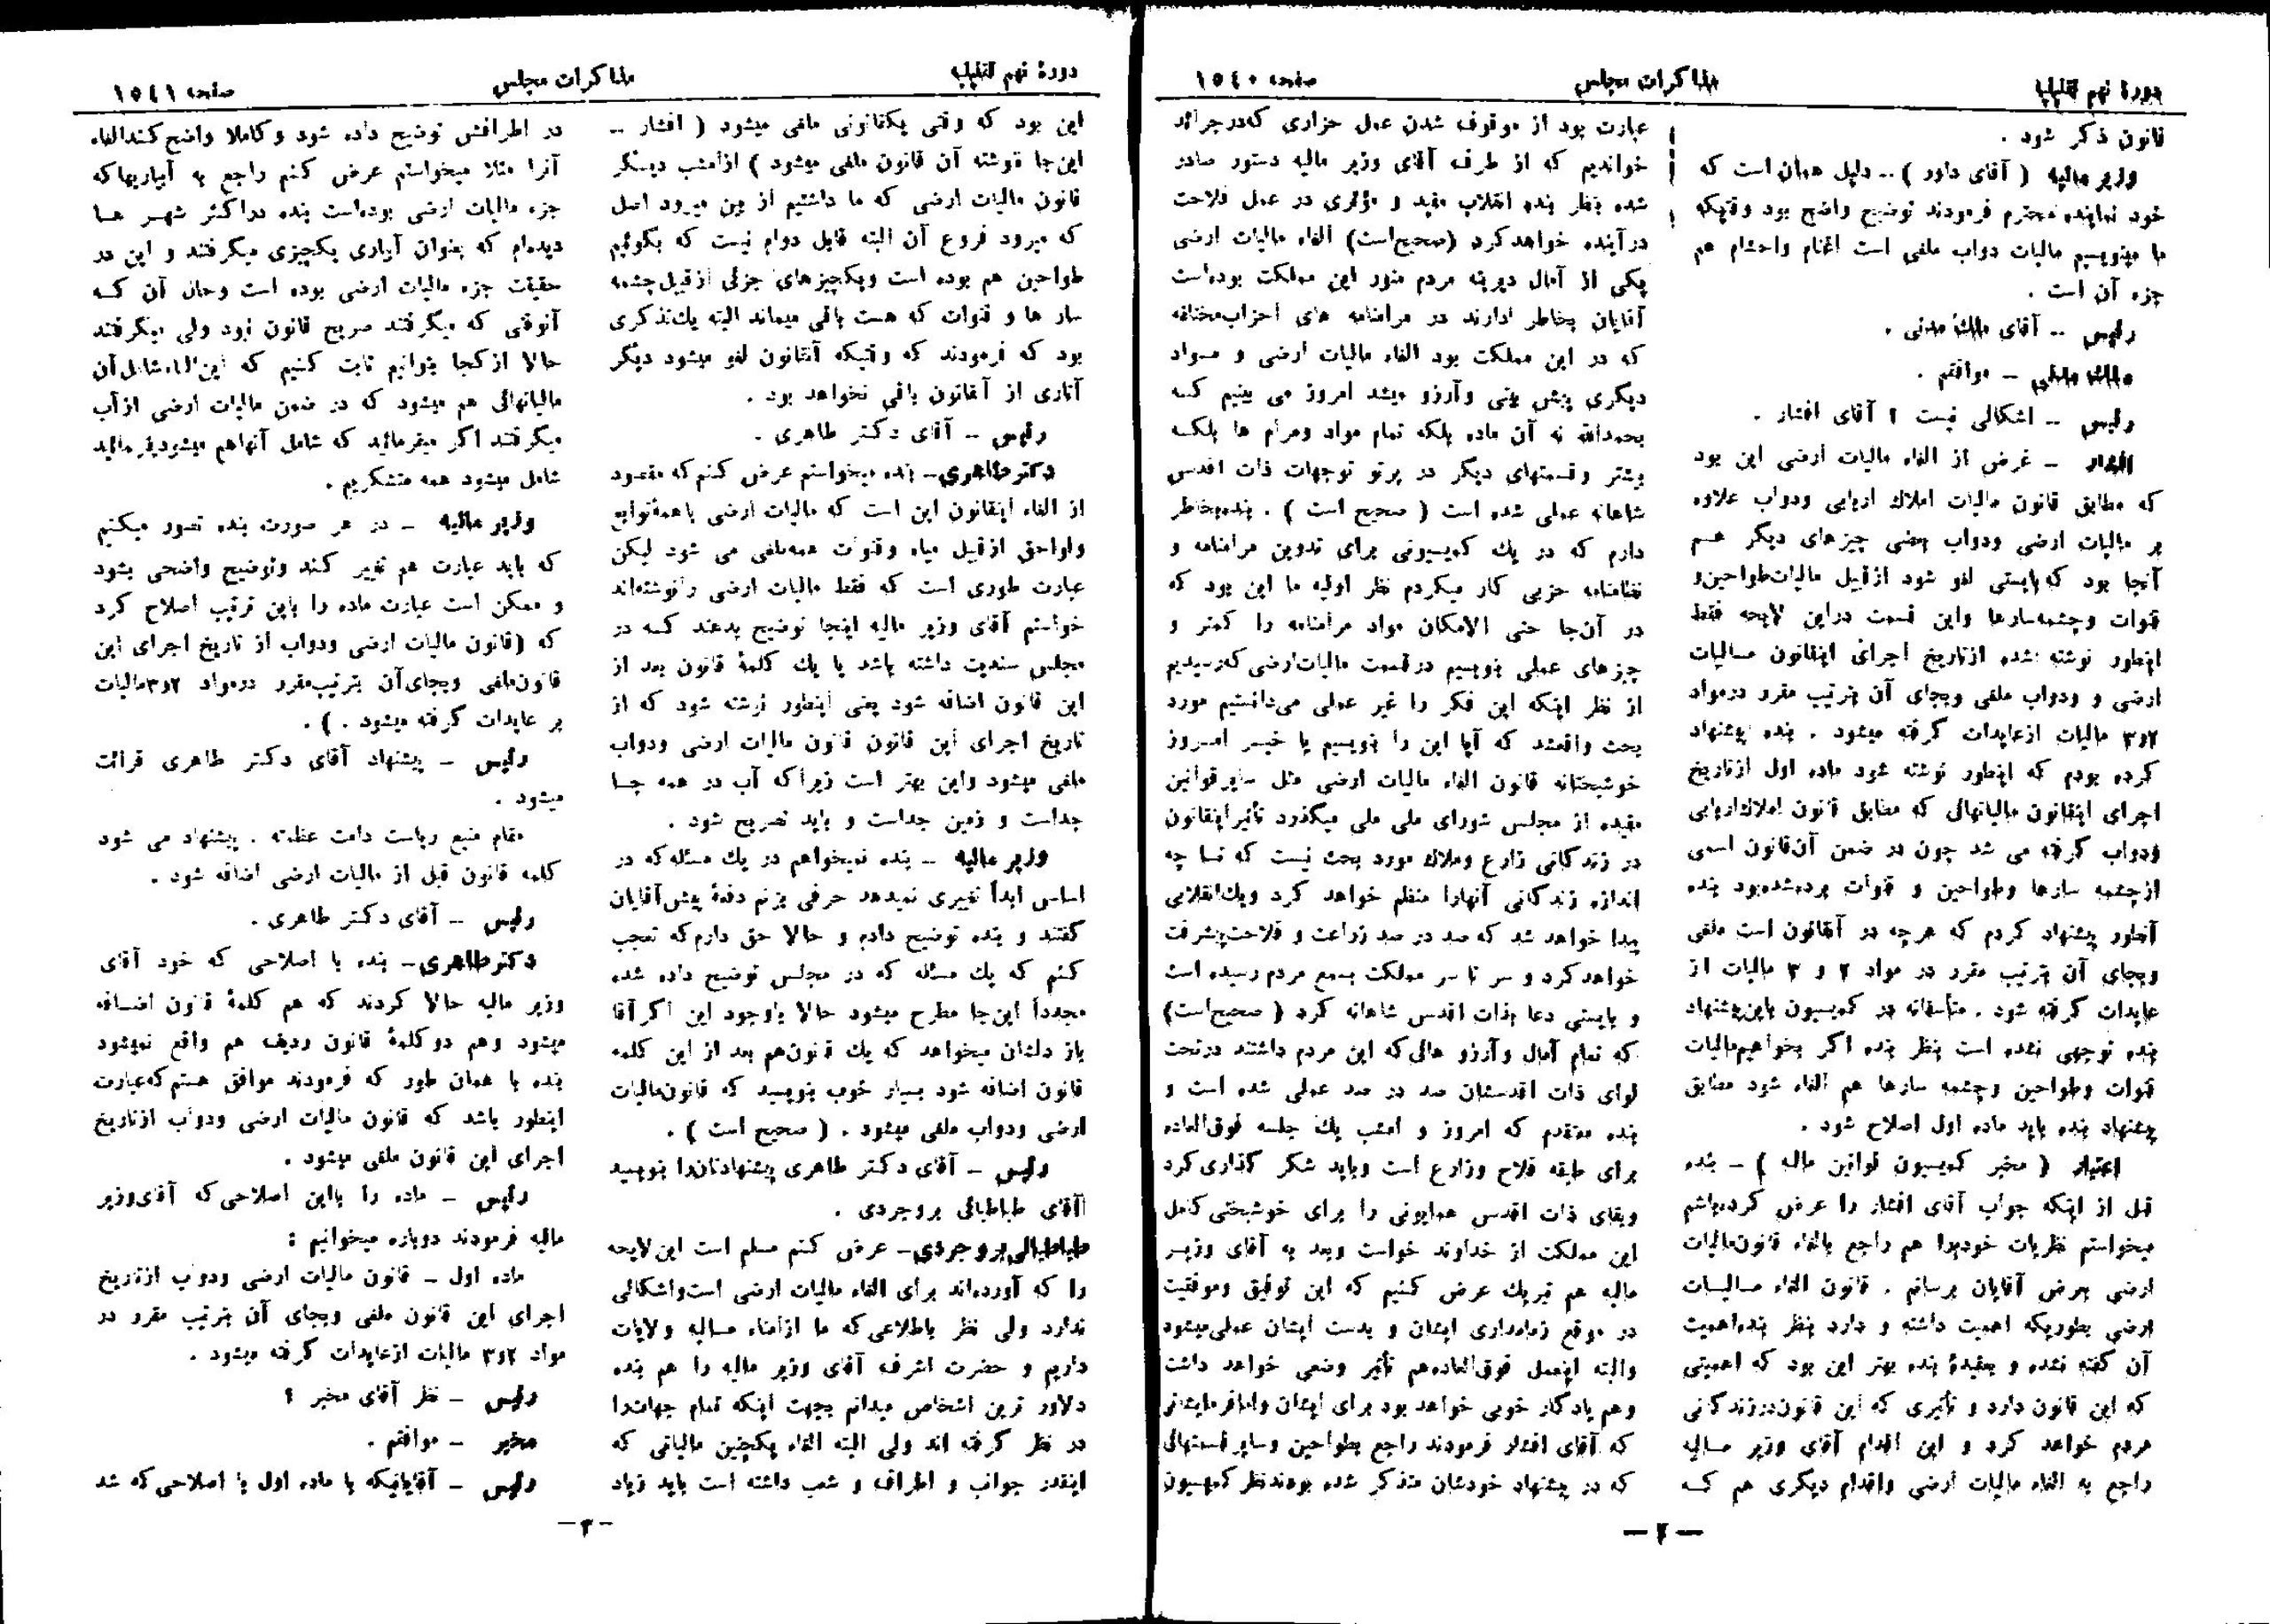 دورهٔ نهم تقنینیه
مذاکرات مجلس
صفحه ۱۵۴۰
قانون ذکر شود .
وزیر مالیه ( آقای داور ) – دلیل همان است که
خود نماینده محترم فرمودند توضیح واضح بود وقتیکه
ما مینویسیم مالیات دواب ملغی است اغنام واحشام هم
جزء آن است .
رئیس – آقای ملك مدنی .
ملك مدنی – موافقم .
رئیس – اشکالی نیست ؟ آقای افشار .
افشار – غرض از الغاء مالیات ارضی این بود
که مطابق قانون مالیات املاك اربابی ودواب علاوه
بر مالیات ارضی ودواب بعضی چیزهای دیگر هم
آنجا بود که بایستی لغو شود ازقبیل مالیات طواحین و
قنوات وچشمه‌سارها واین قسمت دراین لایحه فقط
اینطور نوشته شده ازتاریخ اجرای اینقانون مالیات
ارضی و ودواب ملغی وبجای آن بترتیب مقرر درمواد
۲و۳ مالیات ازعایدات گرفته میشود . بنده پیشنهاد
کرده بودم که اینطور نوشته شود ماده اول ازتاریخ
اجرای اینقانون مالیاتهائی که مطابق قانون املاك اربابی
ودواب گرفته می شد چون در ضمن آن‌قانون اسمی
ازچشمه سارها وطواحین و قنوات برده‌شده‌بود بنده
آنطور پیشنهاد کردم که هرچه در آنقانون است ملغی
وبجای آن بترتیب مقرر در مواد ۲ و ۳ مالیات از
عایدات گرفته شود . متأسفانه در کمیسیون باین‌پیشنهاد
بنده توجهی نشده است بنظر بنده اگر بخواهیم‌مالیات
قنوات وطواحین وچشمه سارها هم الغاء شود مطابق
پیشنهاد بنده باید ماده اول اصلاح شود .
اعتبار ( مخبر کمیسیون قوانین مالیه ) – بنده
قبل از اینکه جواب آقای افشار را عرض کرده‌باشم
میخواستم نظریات خودم‌را هم راجع بالغاء قانون‌مالیات
ارضی بعرض آقایان برسانم . قانون الغاء مالیات
ارضی بطوریکه اهمیت داشته و دارد بنظر بنده‌اهمیت
آن گفته نشده و بعقیدهٔ بنده بهتر این بود که اهمیتی
که این قانون دارد و تأثیری که این قانون‌درزندگانی
مردم خواهد کرد و این اقدام آقای وزیر مالیه
راجع به الغاء مالیات ارضی واقدام دیگری هم که
عبارت بود از موقوف شدن عمل حزاری که‌درجرائد
خواندیم که از طرف آقای وزیر مالیه دستور صادر
شده بنظر بنده انقلاب مفید و مؤثری در عمل فلاحت
درآینده خواهدکرد (صحیح‌است) الغاء مالیات ارضی
یکی از آمال دیرینه مردم منور این مملکت بوده‌است
آقایان بخاطر دارند در مرامنامه های احزاب‌مختلفه
که در این مملکت بود الغاء مالیات ارضی و مواد
دیگری پیش بینی وآرزو میشد امروز می بینیم که
بحمدالله نه آن ماده بلکه تمام مواد ومرام ها بلکه
بیشتر وقسمتهای دیگر در پرتو توجهات ذات اقدس
شاهانه عملی شده است ( صحیح است ) . بنده‌بخاطر
دارم که در یك کمیسیونی برای تدوین مرامنامه و
نظامنامه حزبی کار میکردم نظر اولیه ما این بود که
در آن‌جا حتی الامکان مواد مرامنامه را کمتر و
چیزهای عملی بنویسیم درقسمت مالیات‌ارضی که‌رسیدیم
از نظر اینکه این فکر را غیر عملی می‌دانستیم مورد
بحث واقعشد که آیا این را بنویسیم یا خیر امروز
خوشبختانه قانون الغاء مالیات ارضی مثل سایرقوانین
مفیده از مجلس شورای ملی ملی میگذرد تأثیراینقانون
در زندگانی زارع وملاك مورد بحث نیست که تا چه
اندازه زندگانی آنهارا منظم خواهد کرد ویك‌انقلابی
پیدا خواهد شد که صد در صد زراعت و فلاحت‌پیشرفت
خواهدکرد و سر تا سر مملکت بسمع مردم رسیده است
و بایستی دعا بذات اقدس شاهانه کرد ( صحیح‌است)
که تمام آمال وآرزو هائی‌که این مردم داشتند درتحت
لوای ذات اقدسشان صد در صد عملی شده است و
بنده معتقدم که امروز و امشب یك جلسه فوق‌العاده
برای طبقه فلاح وزارع است وباید شکر گذاری‌کرد
وبقای ذات اقدس همایونی را برای خوشبختی‌کامل
این مملکت از خداوند خواست وبعد به آقای وزیر
مالیه هم تبریك عرض کنیم که این توفیق وموفقیت
در موقع زمامداری ایشان و بدست ایشان عملی‌میشود
والبته اینعمل فوق‌العاده‌هم تأثیر وضعی خواهد داشت
وهم یادگار خوبی خواهد بود برای ایشان واما‌فرمایشاتی
که آقای افشار فرمودند راجع بطواحین وسایرقسمتهائی
که در پیشنهاد خودشان متذکر شده بودندنظرکمیسیون
– ۲ –
دورهٔ نهم تقنینیه
مذاکرات مجلس
صفحه ۱۵۴۱
این بود که وقتی یکقانونی ملغی میشود ( افشار –
این‌جا نوشته آن قانون ملغی میشود ) ازامشب دیگر
قانون مالیات ارضی که ما داشتیم از بین میرود اصل
که میرود فروع آن البته قابل دوام نیست که بگوئیم
طواحین هم بوده است ویکچیزهای جزئی ازقبیل‌چشمه
سار ها و قنوات که هست باقی میماند البته یك‌تذکری
بود که فرمودند که وقتیکه آنقانون لغو میشود دیگر
آثاری از آنقانون باقی نخواهد بود .
رئیس – آقای دکتر طاهری .
دکترطاهری– بنده میخواستم عرض کنم‌که مقصود
از الغاء اینقانون این است که مالیات ارضی باهمهٔ‌توابع
ولواحق ازقبیل میاه وقنوات همه‌ملغی می شود لیکن
عبارت طوری است که فقط مالیات ارضی را‌نوشته‌اند
خواستم آقای وزیر مالیه اینجا توضیح بدهند که در
مجلس سندیت داشته باشد یا یك کلمهٔ قانون بعد از
این قانون اضافه شود یعنی اینطور نوشته شود که از
تاریخ اجرای این قانون قانون مالیات ارضی ودواب
ملغی میشود واین بهتر است زیراکه آب در همه جا
جداست و زمین جداست و باید تصریح شود .
وزیر مالیه – بنده نمیخواهم در یك مسئله‌که در
اساس ابداً تغییری نمیدهد حرفی بزنم دفعهٔ پیش‌آقایان
گفتند و بنده توضیح دادم و حالا حق دارم‌که تعجب
کنم که یك مسئله که در مجلس توضیح داده شده
مجدداً این‌جا مطرح میشود حالا باوجود این اگرآقا
باز دلشان میخواهد که یك قانون‌هم بعد از این کلمه
قانون اضافه شود بسیار خوب بنویسید که قانون‌مالیات
ارضی ودواب ملغی میشود . ( صحیح است ) .
رئیس – آقای دکتر طاهری پیشنهادتان‌را بنویسید
آآقای طباطبائی بروجردی .
طباطبائی‌بروجردی– عرض کنم مسلم است این‌لایحه
را که آورده‌اند برای الغاء مالیات ارضی است‌واشکالی
ندارد ولی نظر باطلاعی‌که ما ازامناء مالیه ولایات
داریم و حضرت اشرف آقای وزیر مالیه را هم بنده
دلاور ترین اشخاص میدانم بجهت اینکه تمام جهات‌را
در نظر گرفته اند ولی البته الغاء یکچنین مالیاتی که
اینقدر جوانب و اطراف و شعب داشته است باید زیاد
در اطرافش توضیح داده شود وکاملا واضح‌کندالغاء
آنرا مثلا میخواستم عرض کنم راجع به آبیاریهاکه
جزء مالیات ارضی بوده‌است بنده دراکثر شهر ها
دیده‌ام که بعنوان آبیاری یکچیزی میگرفتند و این در
حقیقت جزء مالیات ارضی بوده است وحال آن که
آنوقتی که میگرفتند صریح قانون نبود ولی میگرفتند
حالا ازکجا بتوانیم ثابت کنیم که این‌الغاءشامل‌آن
مالیاتهائی هم میشود که در ضمن مالیات ارضی ازآب
میگرفتند اگر میفرمائید که شامل آنهاهم میشودبفرمائید
شامل میشود همه متشکریم .
وزیر مالیه – در هر صورت بنده تصور میکنیم
که باید عبارت هم تغییر کند وتوضیح واضحی بشود
و ممکن است عبارت ماده را باین ترتیب اصلاح کرد
که (قانون مالیات ارضی ودواب از تاریخ اجرای این
قانون‌ملغی وبجای‌آن بترتیب‌مقرر درمواد ۲و۳مالیات
بر عایدات گرفته میشود . ) .
رئیس – پیشنهاد آقای دکتر طاهری قرائت
میشود .
مقام منیع ریاست دامت عظمته . پیشنهاد می شود
کلمه قانون قبل از مالیات ارضی اضافه شود .
رئیس – آقای دکتر طاهری .
دکترطاهری– بنده با اصلاحی که خود آقای
وزیر مالیه حالا کردند که هم کلمهٔ قانون اضافه
میشود وهم دوکلمهٔ قانون ردیف هم واقع نمیشود
بنده با همان طور که فرمودند موافق هستم‌که‌عبارت
اینطور باشد که قانون مالیات ارضی ودواب ازتاریخ
اجرای این قانون ملغی میشود .
رئیس – ماده را بااین اصلاحی‌که آقای‌وزیر
مالیه فرمودند دوباره میخوانیم :
ماده اول – قانون مالیات ارضی ودواب ازتاریخ
اجرای این قانون ملغی وبجای آن بترتیب مقرر در
مواد ۲و۳ مالیات ازعایدات گرفته میشود .
رئیس – نظر آقای مخبر ؟
مخبر – موافقم .
رئیس – آقایانیکه با ماده اول با اصلاحی‌که شد
– ۳ –